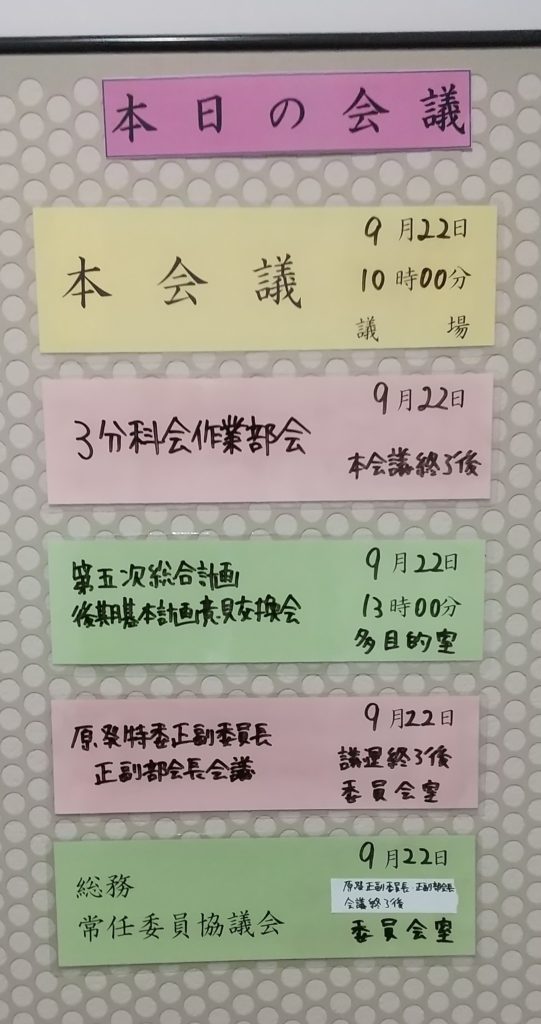 本日の会議
本会議
9月22日
10時00分
議場
3分科会作業部会
9月22日
本会議終了後
第五次総合計画
後期基本計画意見交換会
9月22日
13時00分
多目的室
原発特委正副委員長
正副部会長会議
9月22日
議運終了後
委員会室
総務
常任委員協議会
9月22日
原発正副委員長・正副部会長
会議終了後
委員会室